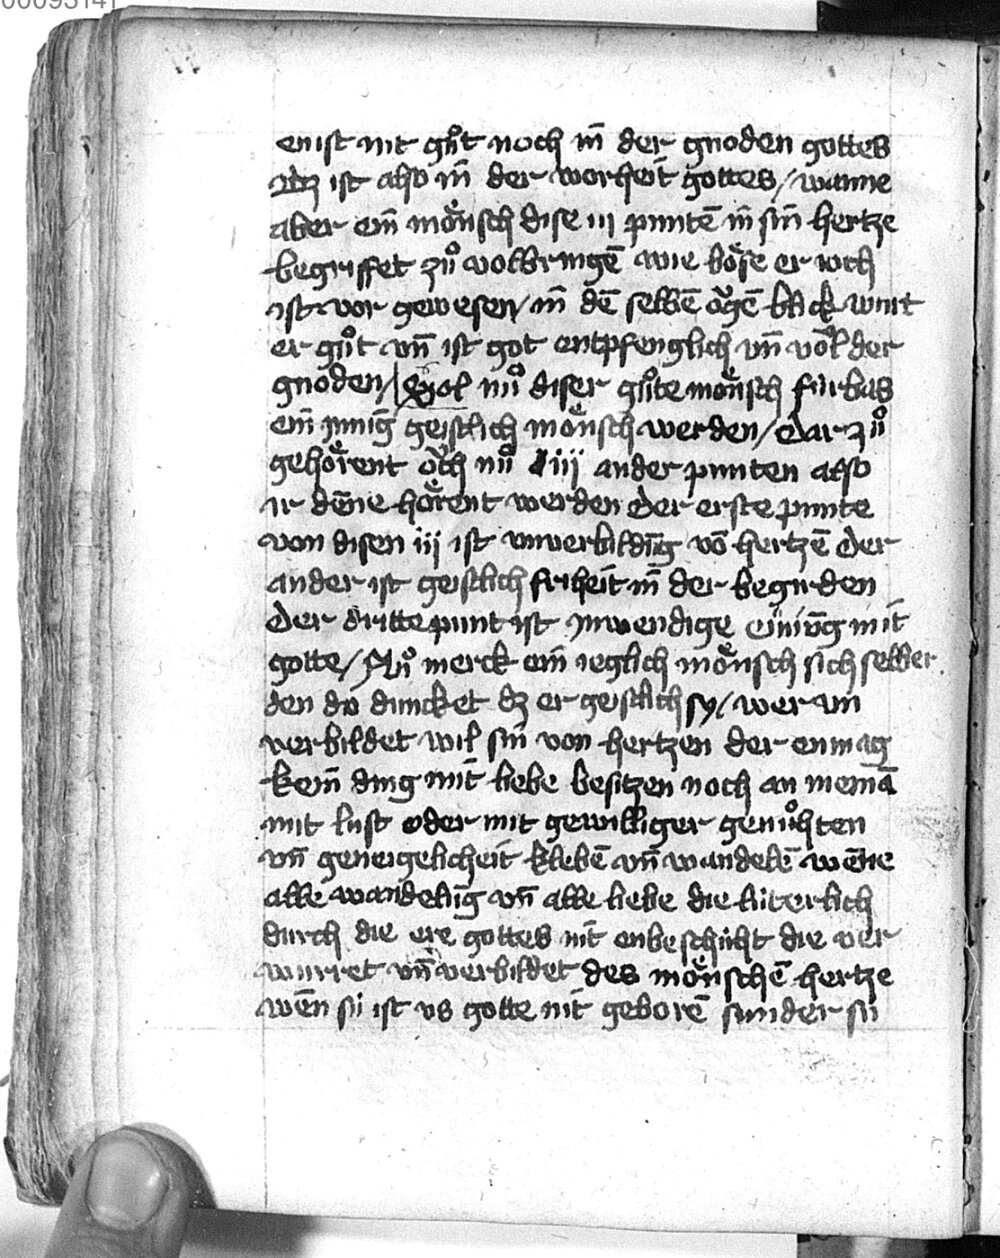 enist nit gůt noch in̄ der gnoden gottes
dz ist also in̄ der worheit gottes / wanne
aber ein̄ mönsch dise iij puntē in̄ sin̄ hertze
begriffet zů volbringē wie böse er ioch
ist vor gewesen / in̄ dē selbē ögē blick wurt
er gůt vn̄ ist got entpfenglich vn̄ vol der
gnoden / Sol nů diser gůte mönsch fúrbas
ein̄ jnnig geistlich mönsch werden / dar zů
gehörent öch nů iij ander punten also
ir den̄e hörent werden der erste punte
von disen iij ist vnuerbildūg vō hertzē der
ander ist geistlich friheit in̄ der begirden
Der dritte punt ist jnwendige einiūg mit
gotte / Nů merck ein̄ ieglich mönsch sich selber
den do duncket dz er geistlich sy / wer vn
verbildet wil sin von hertzen der enmag
kein̄ ding mit liebe besitzen noch an niemā
mit lust oder mit gewilliger genůhten
vn̄ geneigelicheit klebē vn̄ wandelē wēne
alle wandelūg vn̄ alle liebe die luterlich
durch die ere gottes nit enbeschiht die ver
wurret vn̄ verbildet des mönschē hertze
wēn sú ist vs gotte nit geborē sunder sú